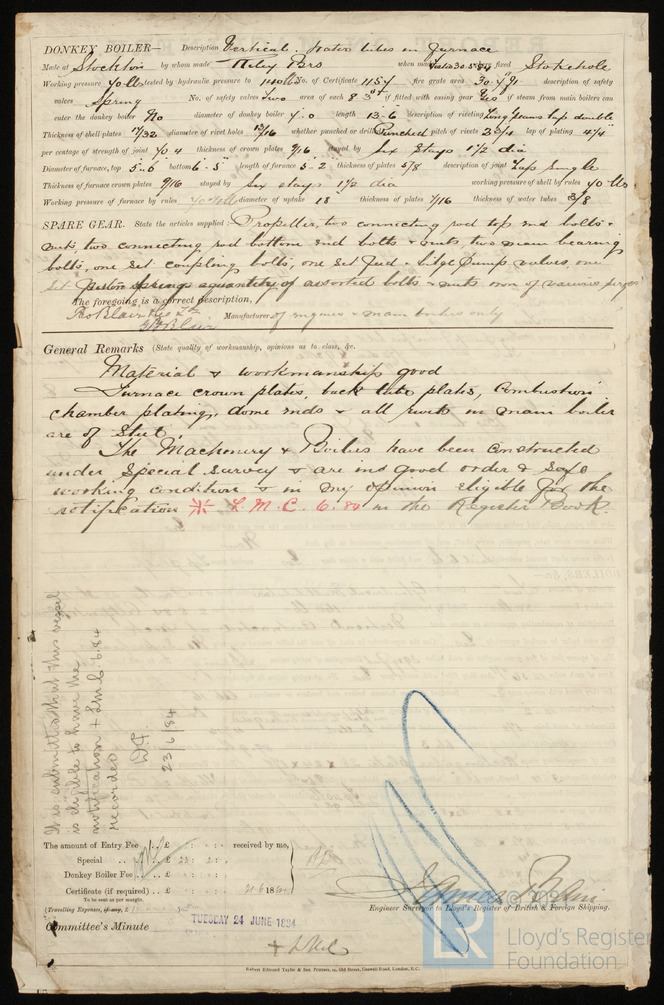 DONKEY BOILER— Description Vertical. Water tubes in furnace
Made at Stockton by whom made Riley Bros when made fixed Stokehole
Working pressure 70 lb tested by hydraulic pressure to 140 lbs No. of Certificate 1154 fire grate area description of safety
valves Spring No. of safety valves Two area of each 8.3 if fitted with easing gear Yes if steam from main boilers can
enter the donkey boiler No diameter of donkey boiler 7.0 length 13-6 description of riveting Long seams lap double
Thickness of shell plates 17/32 diameter of rivet holes 13/16 whether punched or drilled Punched pitch of rivets lap of plating 4 1/4
per centage of strength of joint 70.4 thickness of crown plates 9/16 stayed by Six stays 1 1/2 dia
Diameter of furnace, top 5-6 bottom 6-5 length of furnace 5-2 thickness of plates 5/8 description of joint Lap single
Thickness of furnace crown plates 9/16 stayed by Six stays 1 1/2 dia working pressure of shell by rules 70 lbs
Working pressure of furnace by rules diameter of uptake 18 thickness of plates 7/16 thickness of water tubes 3/8
SPARE GEAR. State the articles supplied:— Propeller, two connecting rod top end bolts &
nuts, two connecting rod bottom end bolts & nuts, two main bearing
bolts, one set coupling bolts, one set feed & bilge pump valves, one
set piston springs a quantity of assorted bolts & nuts iron of various sizes
The foregoing is a correct description,
Blair Manufacturer of engines & main boilers only
General Remarks (State quality of workmanship, opinions as to class, &c.
Material & workmanship good
Furnace crown plates, back tube plates, Combustion
chamber plating, dome ends & all rivets in main boiler
are of Steel.
The Machinery & Boilers have been constructed
under Special Survey & are in good order & safe
working condition & in my opinion eligible for the
notification L.M.C. 6.84 in the Register Book.
It is submitted that this vessel
is eligible to have the
notification + LMC 6.84
recorded
23/6/84
The amount of Entry Fee .. £ : : received by me,
Special .. £ : :
Donkey Boiler Fee .. £ : :
Certificate (if required) .. £ : : 18
To be sent as per margin.
(Travelling Expenses, if any, £
Engineer Surveyor to Lloyd's Register of British & Foreign Shipping.
TUESDAY 24 JUNE 1884
Committee's Minute
Robert Edmund Taylor & Son, Printers, 19, Old Street, Goswell Road, London, E.C.
LR
Lloyd's Register
Foundation